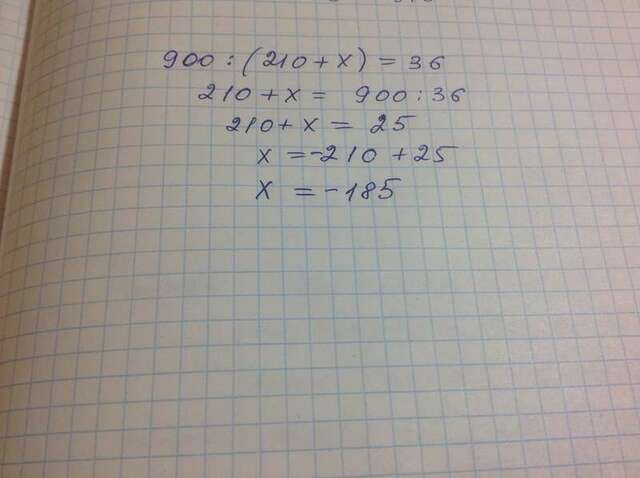 900 : (210 + x) = 36
210 + x = 900 : 36
210 + x = 25
x = -210 + 25
x = -185